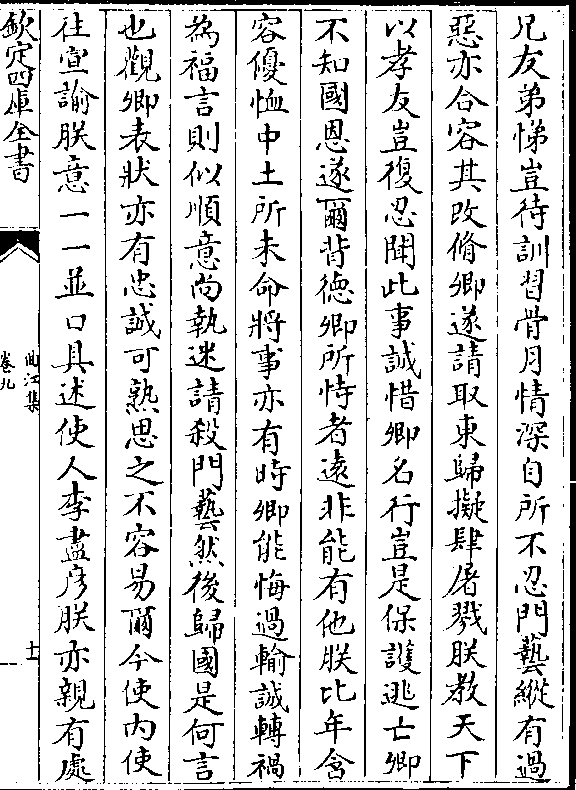 兄友弟悌豈待訓習骨月情深自所不忍門藝縱有過
惡亦合容其改脩卿遂請取東歸擬肆屠戮朕教天下
以孝友豈復忍聞此事誠惜卿名行豈是保護逃亡卿
不知國恩遂爾背德卿所恃者逺非能有他朕比年含
容優恤中土所未命將事亦有時卿能悔過輸誠轉禍
為福言則似順意尚執迷請殺門藝然後歸國是何言
也觀卿表狀亦有忠誠可熟思之不容易爾今使内使
往宣諭朕意一一並口具述使人李盡彦朕亦親有處
欽定四庫全書
曲江集
卷九
十一